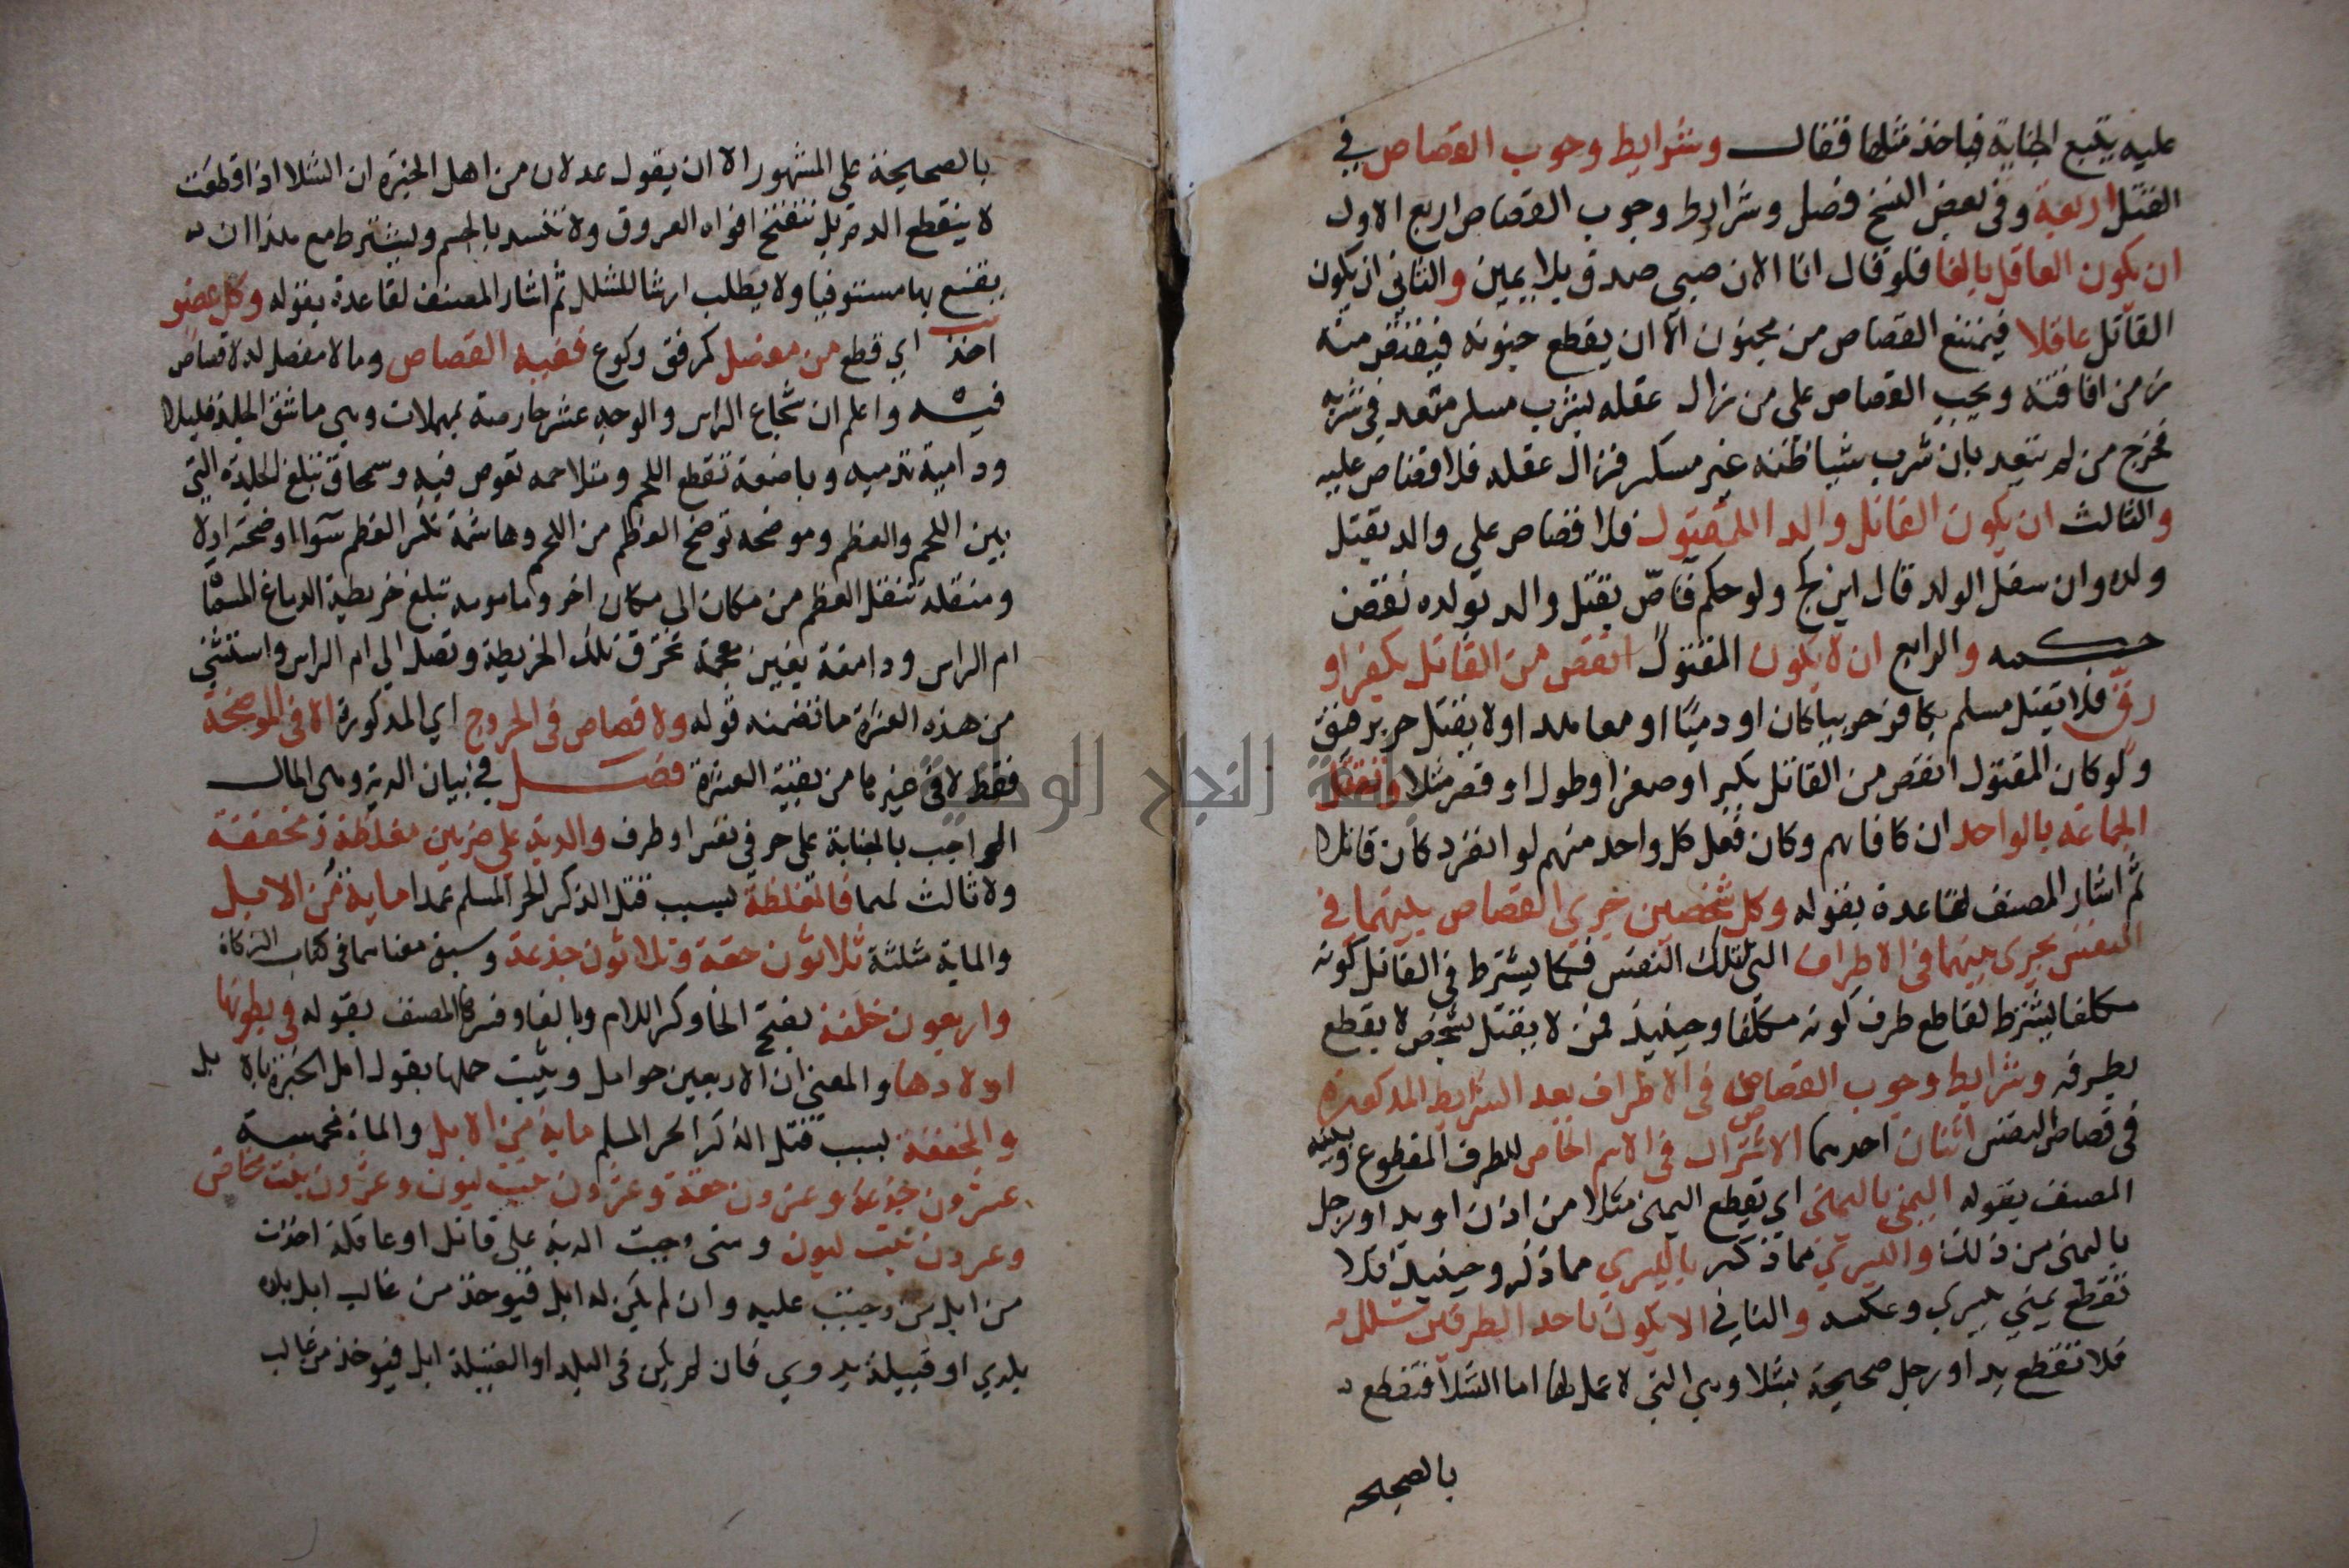 عليه يتبع الجناية فياخذ مثلها فقال وشرايط وجوب القصاص في
القتل اربعة وفي بعض النسخ فصل وشرايط وجوب القصاص اربع الاول
ان يكون العاقل بالغا فلو قال انا الان صبي صدق بلا يمين والثاني ان يكون
القاتل عاقلا فيمتنع القصاص من مجنون الا ان يقطع جنونه فيقتص منه
زمن افاقته ويجب القصاص على من زال عقله بشرب مسكر متعد في شربه
فخرج من لم يتعد بان شرب شيا ظنه غير مسكر فزال عقله فلا قصاص عليه
والثالث ان يكون القاتل والد اللمقتول فلا قصاص على والد بقتل
ولده وان سفل الولد قال ابن كج ولو حكم قاض بقتل والد بولده نقض
حكمه والرابع ان لا يكون المقتول انقص من القاتل بكفر او
رق فلا يقتل مسلم بكافر حربيا كان او دميا او معاهدا ولا يقتل حر برقيق
ولو كان المقتول انقص من القاتل بكبر او صغر او طول او قصر مثلا وتقتل
الجماعة بالواحد ان كافاهم وكان فعل كل واحد منهم لو انفرد كان قاتلا
ثم اشار المصنف لقاعدة بقوله وكل شخصين جرى القصاص بينهما في
النفس يجري بينهما في الاطراف التي لتلك النفس فكما يشترط في القاتل كونه
مكلفا يشترط لقاطع طرف كونه مكلفا وحينيذ فمن لا يقتل بشخص لا يقطع
بطرفه وشرايط وجوب القصاص في الاطراف بعد الشرايط المذكورة
في قصاص النفس اثنان احدهما الاشتراك في الاسم الخاص للطرف المقطوع وبينه
المصنف بقوله اليمنى باليمنى اي تقطع اليمنى مثلا من اذن او يد او رجل
باليمنى من ذلك واليسرى مما ذكر باليسرى مما ذكر وحينيذ فلا
تقطع يمنى بيسرى وعكسه والثاني الا يكون باحد الطرفين شلل
فلا تقطع يد او رجل صحيحة بشلا وهي التي لا عمل لها اما الشلا فتقطع
بالصحيحه
بالصحيحة على المشهور الا ان يقول عدلان من اهل الخبرة ان الشلا اذا قطعت
لا ينقطع الدم بل تنفتح افواه العروق ولا تنسد بالحسم ويشترط مع هذا ان
يقنع بها مستوفيا ولا يطلب ارشا للشلل ثم اشار المصنف لقاعدة بقوله وكل عضو
اخذ اي قطع من مفصل كمرفق وكوع ففيه القصاص وما لا مفصل له لا قصاص
فيه واعلم ان شجاج الراس والوجه عشر حارصة بمهملات وهي ما شق الجلد قليلا
ودامية تدميه وباضعة تقطع اللحم ومتلاحمه تغوص فيه وسمحاق تبلغ الجلدة التي
بين اللحم والعظم وموضحه توضح العظم من اللحم وهاشمة تكسر العظم سوا اوضحته ام لا
ومنقلة تنقل العظم من مكان الى مكان اخر ومامومه تبلغ خريطة الدماغ المسماة
ام الراس ودامغة بغين معجمة تخرق تلك الخريطة وتصل الى ام الراس واستثني
من هذه العشرة ما تضمنه قوله ولا قصاص في الجروح اي المذكورة الا في الموضحة
فقط لا في غيرها من بقية العشرة فصل في بيان الدية وهي المال
الواجب بالجناية على حر في نفس او طرف والدية على ضربين مغلظة ومخففة
ولا ثالث لهما فالمغلظة بسبب قتل الذكر الحر المسلم عمدا ماية من الابل
والماية مثلثة ثلاثون حقة وثلاثون جذعة وسبق معناهما في كتاب الزكاة
واربعون خلفة بفتح الخا وكسر اللام وبالفا وفسرها المصنف بقوله في بطونها
اولادها والمعنى ان الاربعين حوامل ويثبت حملها بقول اهل الخبرة بالابل
والمخففة بسبب قتل الذكر الحر المسلم ماية من الابل والماة مخمسة
عشرون جذعة وعشرون حقة وعشرون بنت لبون وعشرون بنت مخاض
وعشرون بنت لبون ومتى وجبت الدية على قاتل او عاقلة اخذت
من ابل من وجبت عليه وان لم يكن له ابل فتوخذ من غالب ابل بلدة
بلدي او قبيلة بدوي فان لم يكن في البلد او القبيلة ابل فتوخذ من غالب
جامعة النجاح الوطنية